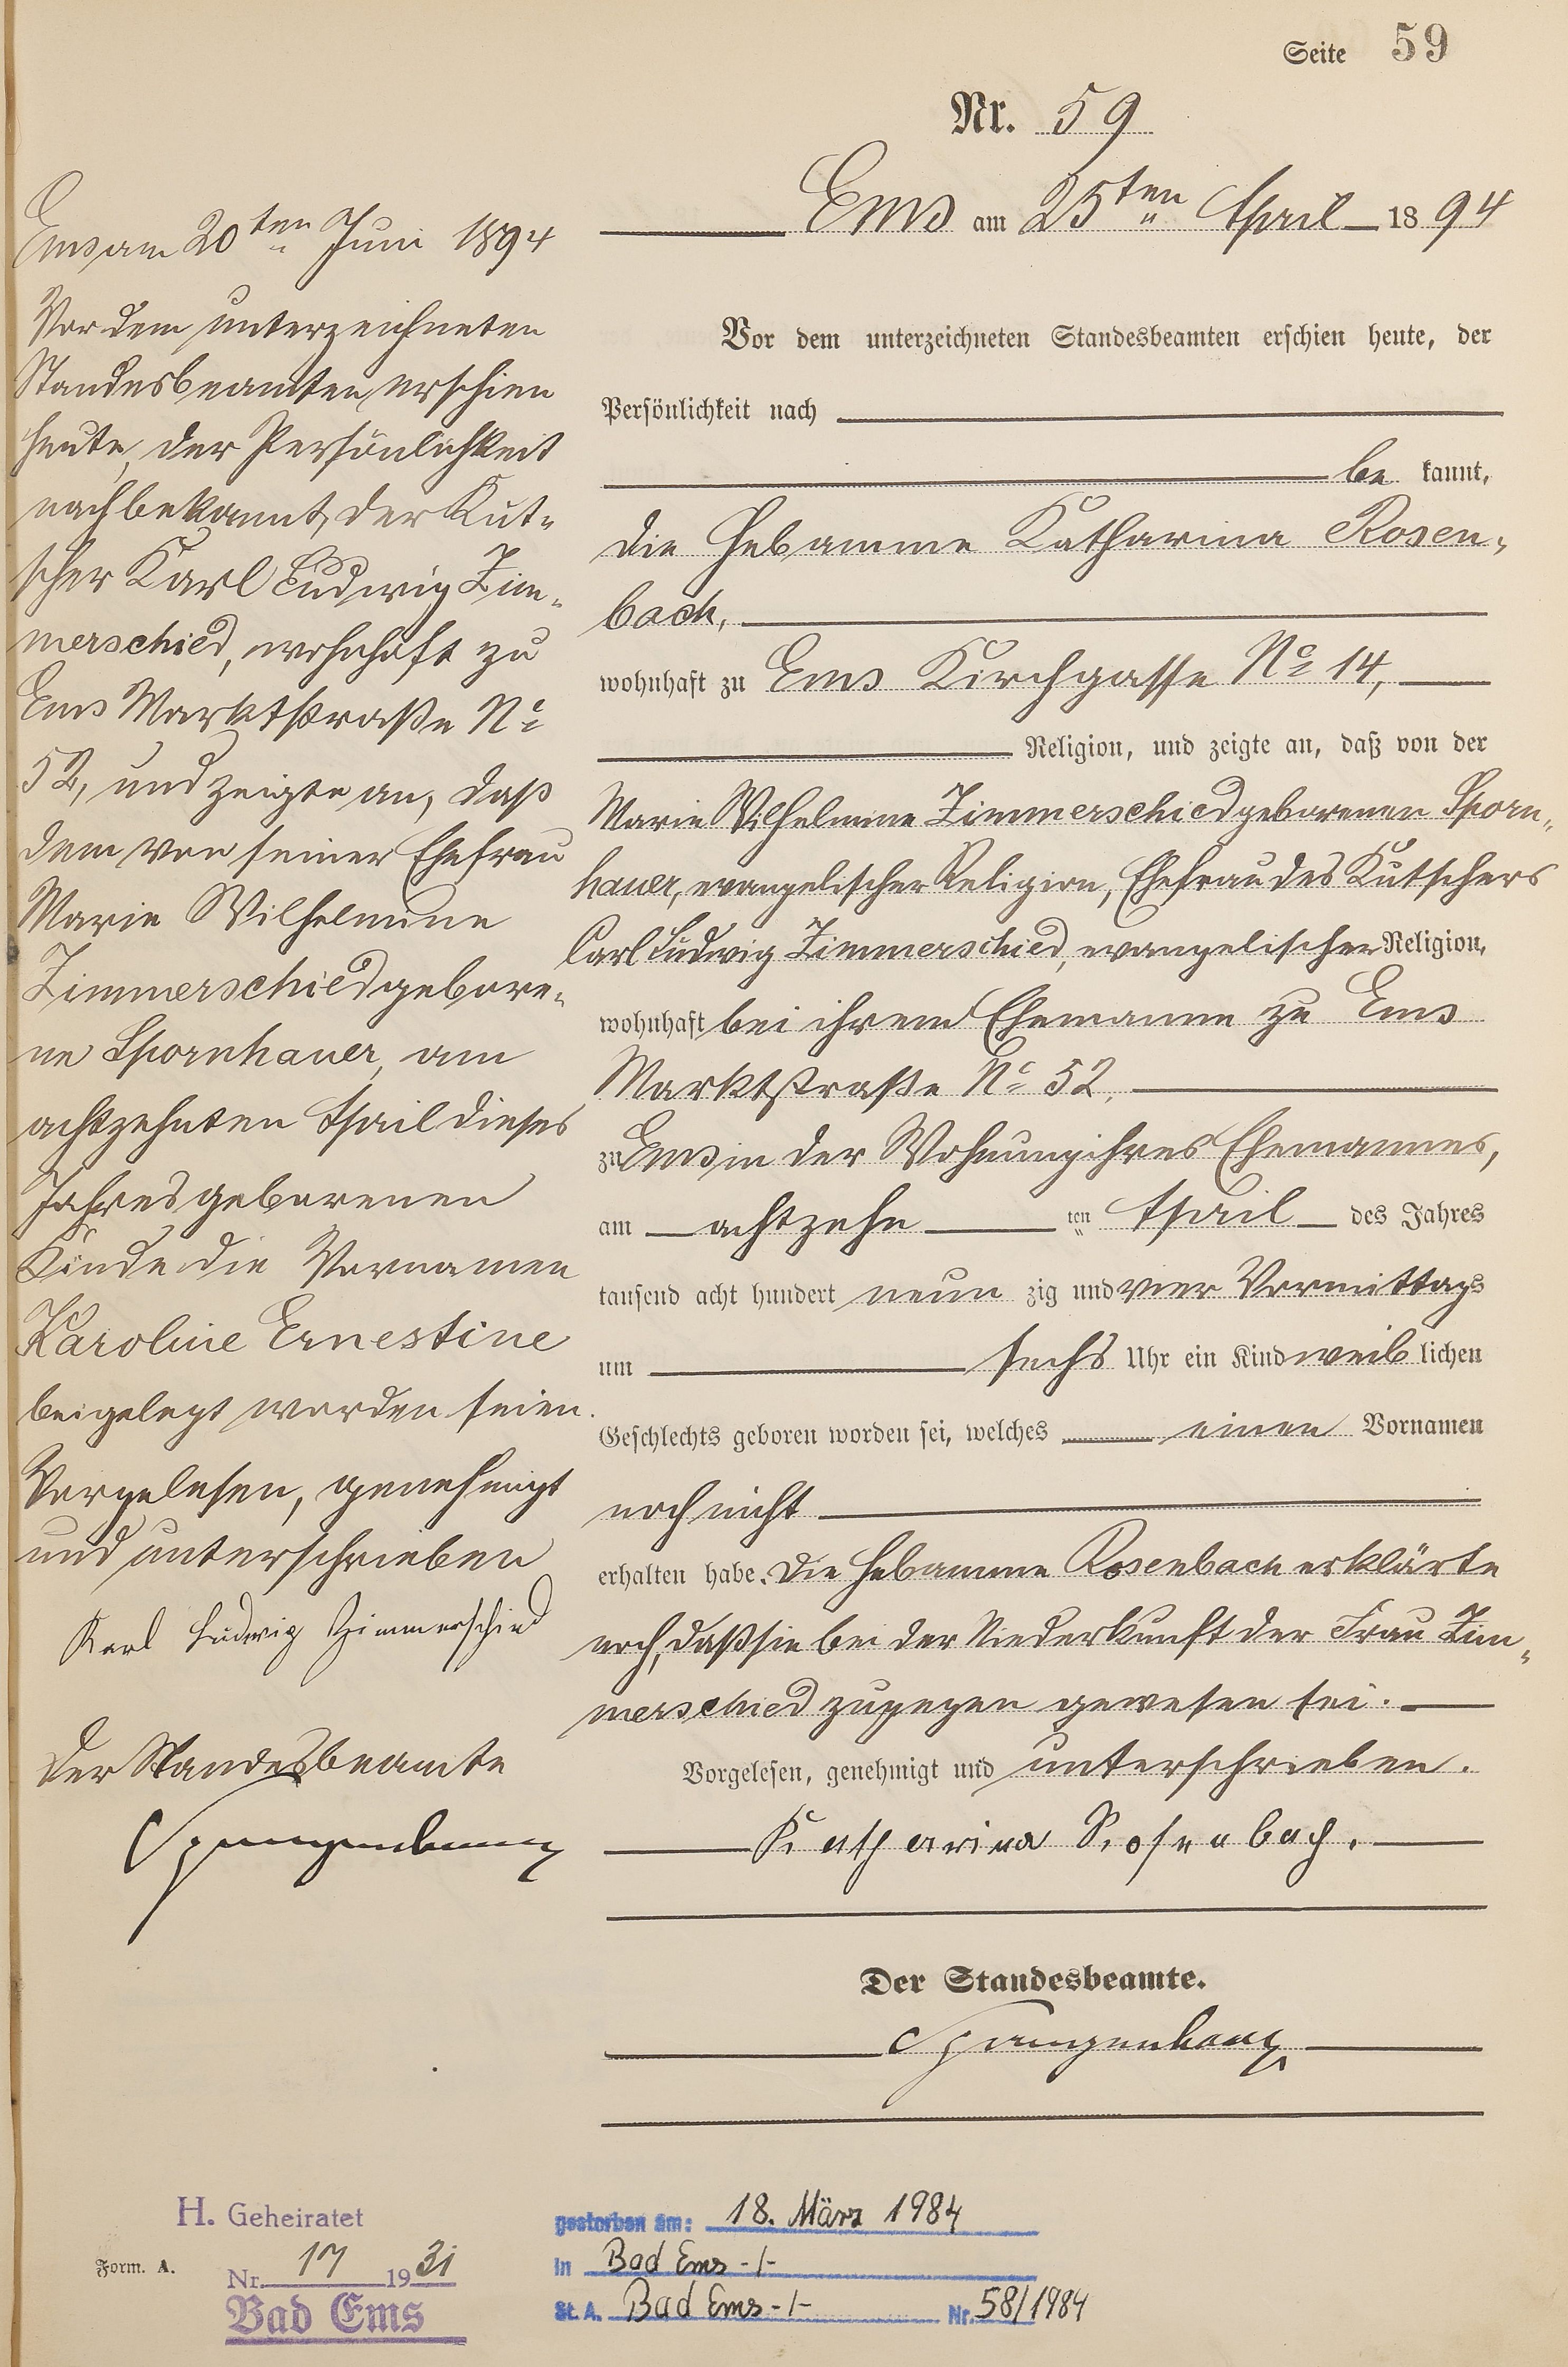 Seite 59
Nr. 59
Ems am 25ten April 1894
Vor dem unterzeichneten Standesbeamten erschien heute, der
Persönlichkeit nach
be kannt,
die Hebamme Katharina Rosen-
bach,
wohnhaft zu Ems Kirchgasse No 14,
Religion, und zeigte an, daß von der
Marie Wilhelmine Zimmerschied geborenen Sporn-
hauer, evangelischer Religion, Ehefrau des Kutschers
Carl Ludwig Zimmerschied, evangelischer Religion,
wohnhaft bei ihrem Ehemanne zu Ems
Marktstraße No 52,
zu Ems in der Wohnung ihres Ehemannes,
am achtzehn ten April des Jahres
tausend acht hundert neun zig und vier Vormittags
um sechs Uhr ein Kind weib lichen
Geschlechts geboren worden sei, welches einen Vornamen
noch nicht
erhalten habe. Die Hebamme Rosenbach erklärte
noch, daß sie bei der Niederkunft der Frau Zim-
merschied zugegen gewesen sei.
Vorgelesen, genehmigt und unterschrieben.
Katharina Rosenbach.
Der Standesbeamte.
Spangenberg
Ems am 20ten Juni 1894
Vor dem unterzeichneten
Standesbeamten erschien
heute, der Persönlichkeit
nach bekannt, der Kut-
scher Karl Ludwig Zim-
merschied, wohnhaft zu
Ems Marktstraße No
52, und zeigte an, daß
dem von seiner Ehefrau
Marie Wilhelmine
Zimmerschied gebore-
ne Spornhauer, am
achtzehnten April dieses
Jahres geborenen
Kinde die Vornamen
Karoline Ernestine
beigelegt worden seien.
Vorgelesen, genehmigt
und unterschrieben
Karl Ludwig Zimmerschied
Der Standesbeamte
Spangenberg
H. Geheiratet
Nr. 17 1931
Bad Ems
Form. A.
gestorben am: 18. März 1984
in Bad Ems -/-
St. A. Bad Ems -/- Nr. 58/1984